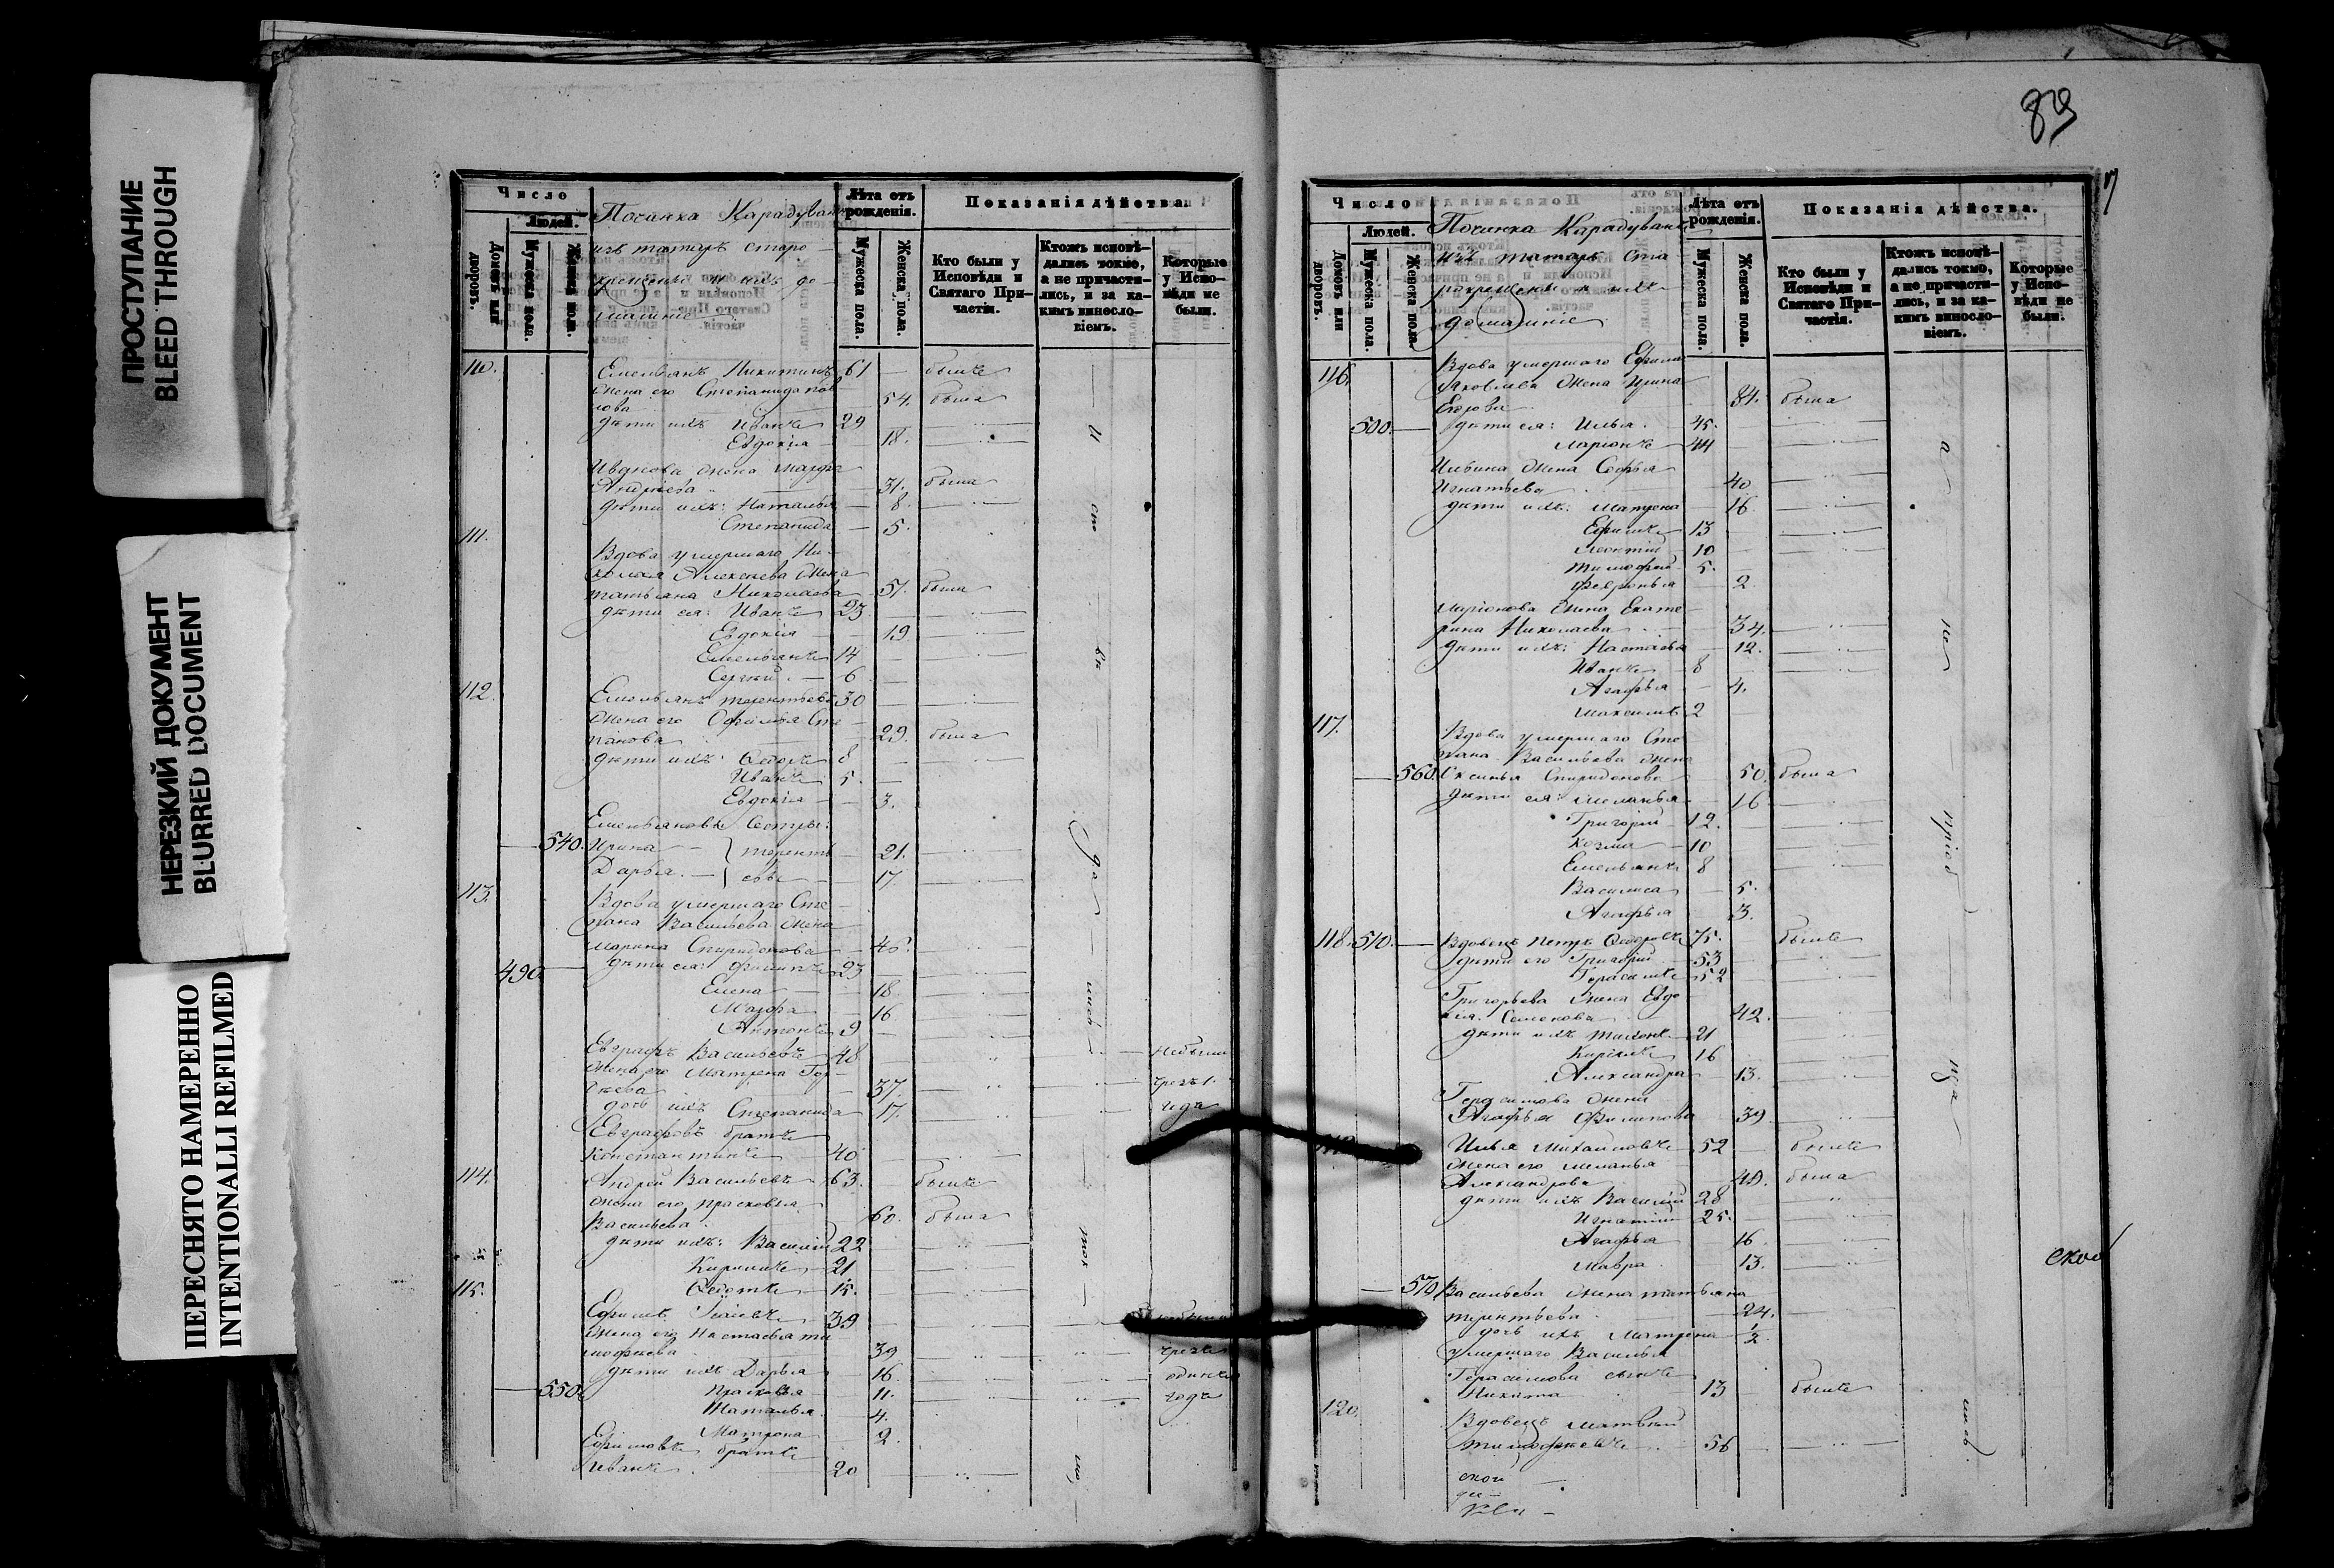 ПРОСТУПАНИЕ
BLEED THROUGH
НЕРЕЗКИЙ ДОКУМЕНТ
BLURRED DOCUMENT
ПЕРЕСНЯТО НАМЕРЕННО
INTENTIONALLI REFILMED
Число
Людей.
Домовъ или дворовъ.
Мужеска пола.
Женска пола.
Починка Карадуванъ
изъ татаръ старо
крещены и ихъ до
машние
Лѣта отъ рожденія.
Мужеска пола.
Женска пола.
Показанія дѣйства.
Кто были у Исповѣди и Святаго При-частія.
Ктожъ исповѣ-дались токмо, а не причасти-лись, и за ка-кимъ виносло-віемъ.
Которые у Испо-вѣди не были.
110. Емельянъ Никитинъ 61 — былъ
Жена его Степанида
54. была
дѣти ихъ Иванъ 29
Евдокія 18.
Иванова жена Марфа
Андреева 31. была
дѣти ихъ: Наталья 8.
Степанида 5.
111.
Вдова умершаго Ни-
колая Алексѣева жена
Татьяна Николаева 51. была
дѣти ея: Иванъ 23
Евдокія 19
Емельянъ 14
Сергий 6
112. Емельянъ Терентьевъ 30
Жена его Офимья Сте
панова 29. была
дѣти ихъ: Ѳедоръ 8
Иванъ 5.
Евдокія 3.
Емельяновы сестры:
540. Ирина 21.
Дарья 17.
Теренть
евы
113. Вдова умершаго Сте
пана Васильева жена
Марина Спиридонова 45.
490 дѣти ея: Филипъ 23
Елена 18.
Марфа 16
Антонъ 9
Евграфъ Васильевъ 48 не были
Жена его Матрена
37. чрезъ 1.
дочь ихъ Степанида 17. годъ
Евграфовъ братъ
Константинъ 40
114. Андрей Васильевъ 63. былъ
жена его Прасковья
Васильева 60. была
дѣти ихъ: Василій 22
Кирилъ 21
115. Ѳедотъ 15.
Ефимъ 39
Жена его Настасья Ти
мофеева 39 чрезъ
дѣти ихъ Дарья 16. одинъ
550. Прасковья 11. годъ
Наталья 4.
Матрона 2.
Ефимовъ братъ
Иванъ 20
89
Число
Людей.
Домовъ или дворовъ.
Мужеска пола.
Женска пола.
Починка Карадуванъ
изъ татаръ ста
рокрещены и ихъ
домашние
Лѣта отъ рожденія.
Мужеска пола.
Женска пола.
Показанія дѣйства.
Кто были у Исповѣди и Святаго При-частія.
Ктожъ исповѣ-дались токмо, а не причасти-лись, и за ка-кимъ виносло-віемъ.
Которые у Испо-вѣди не были.
116. Вдова умершаго Ефима
Яковлева жена Ирина
Егорова 84. была
500. дѣти ея: Илья 45.
Ларіонъ 44
Ильина жена Софья
Игнатьева 40
дѣти ихъ: Матрена 16.
Ефимъ 13
Леонтій 10
Тимофей 5.
Февронья 2.
Ларіонова жена Екате
рина Николаева 34.
дѣти ихъ: Настасья 12.
Иванъ 8
Агафья 4.
Максимъ 2
117.
Вдова умершаго Сте
пана Васильева жена
560. Оксинья Спиридонова 50. была
дѣти ея: Меланья 16
Григорій 12.
Козма 10
Емельянъ 8
Василиса 5.
Агафья 3.
118. 510. Вдовецъ Петръ Ѳедоровъ 75. былъ
дѣти его Григорій 53
Герасимъ 52
Григорьева жена Евдо
кія Семенова 42.
дѣти ихъ Тихонъ 21
Кирилъ 16
Александра 13.
Герасимова жена
Агафья Филипова 39
119. Илья Михайловъ 52 былъ
Жена его Меланья
Александрова 49. была
дѣти ихъ Василій 28
Игнатій 25.
Агафья 16
Мавра 13.
570 Васильева жена Татьяна
Терентьева 24.
дочь ихъ Матрена 1/2
умершаго Василья
Герасимова сынъ
Никита 13 былъ
120. Вдовецъ Матвѣй
Тимофеевъ 56